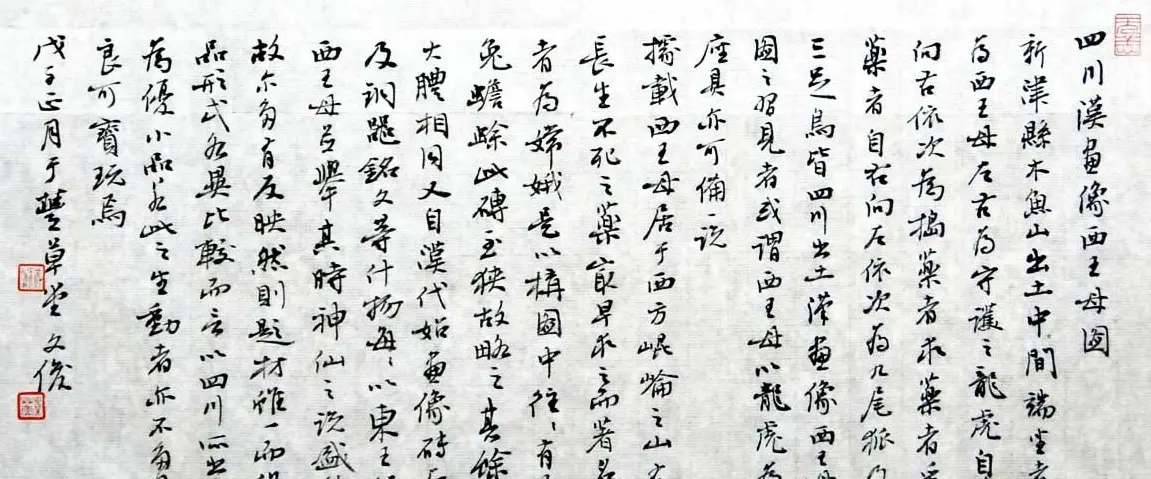 四川漢畫像西王母圖
新津縣木魚山出土中間端坐者
為西王母左右為守護之龍虎自
向右依次為搗藥者求藥者
藥者自右向左依次為九尾狐乃
三足烏皆四川出土漢畫像西王母
圖之習見者或謂西王母以龍虎為
座具亦可備一說
據載西王母居于西方崐崙之山有
長生不死之藥最早求之而著名
者為嫦娥是以構圖中往々有
兔蟾蜍此磚至狹故略之其餘
大體相同又自漢代始畫像磚
及銅器銘文等什物每々以東王
西王母並舉其時神仙之說盛
故亦多有反映然則題材雖一而
品形式各異比較而言以四川所出
為優小品若此之生動者亦不多
良可寶玩焉
戊子正月于豐草堂文俊